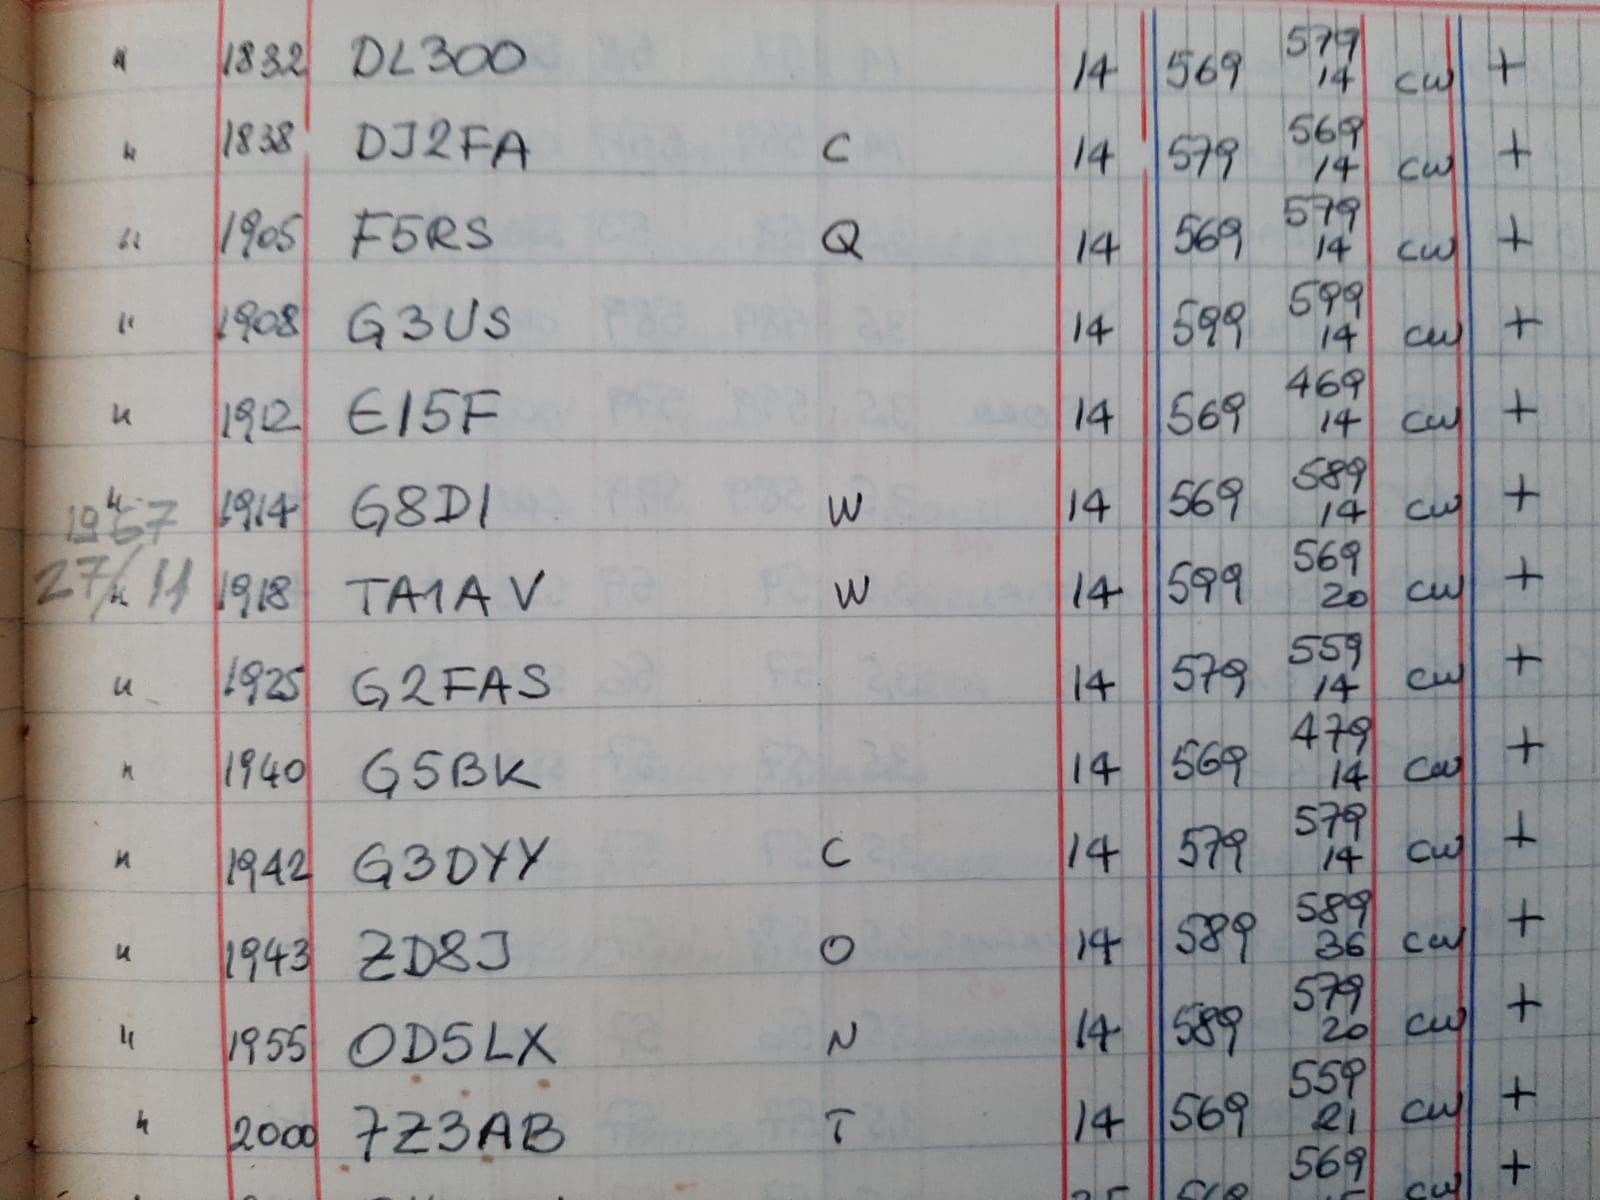 " 1832 DL300 14 569 579 14 cw +
" 1838 DJ2FA C 14 579 569 14 cw +
" 1905 F5RS Q 14 569 579 14 cw +
" 1908 G3US 14 599 599 14 cw +
" 1912 EI5F 14 569 469 14 cw +
" 1914 G8DI W 14 569 589 14 cw +
1967
27/11
" 1918 TA1AV W 14 599 569 20 cw +
" 1925 G2FAS 14 579 559 14 cw +
" 1940 G5BK 14 569 479 14 cw +
" 1942 G3DYY C 14 579 579 14 cw +
" 1943 ZD8J O 14 589 589 36 cw +
" 1955 OD5LX N 14 589 579 20 cw +
" 2000 7Z3AB T 14 569 559 21 cw +
569 cw +